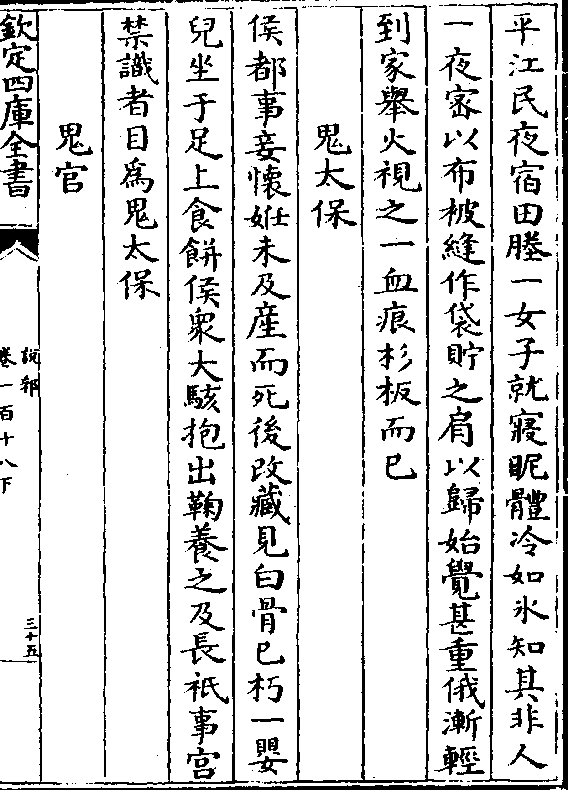 平江民夜宿田塍一女子就寢眤體冷如氷知其非人
一夜宻以布被縫作袋貯之肩以歸始覺甚重俄漸輕
到家舉火視之一血痕杉板而已
鬼太保
侯都事妾懷姙未及産而死後改藏見白骨已朽一嬰
兒坐于足上食餅侯衆大駭抱出鞠養之及長祇事宫
禁識者目為鬼太保
鬼官
欽定四庫全書
説郛
卷一百十八下
三十五